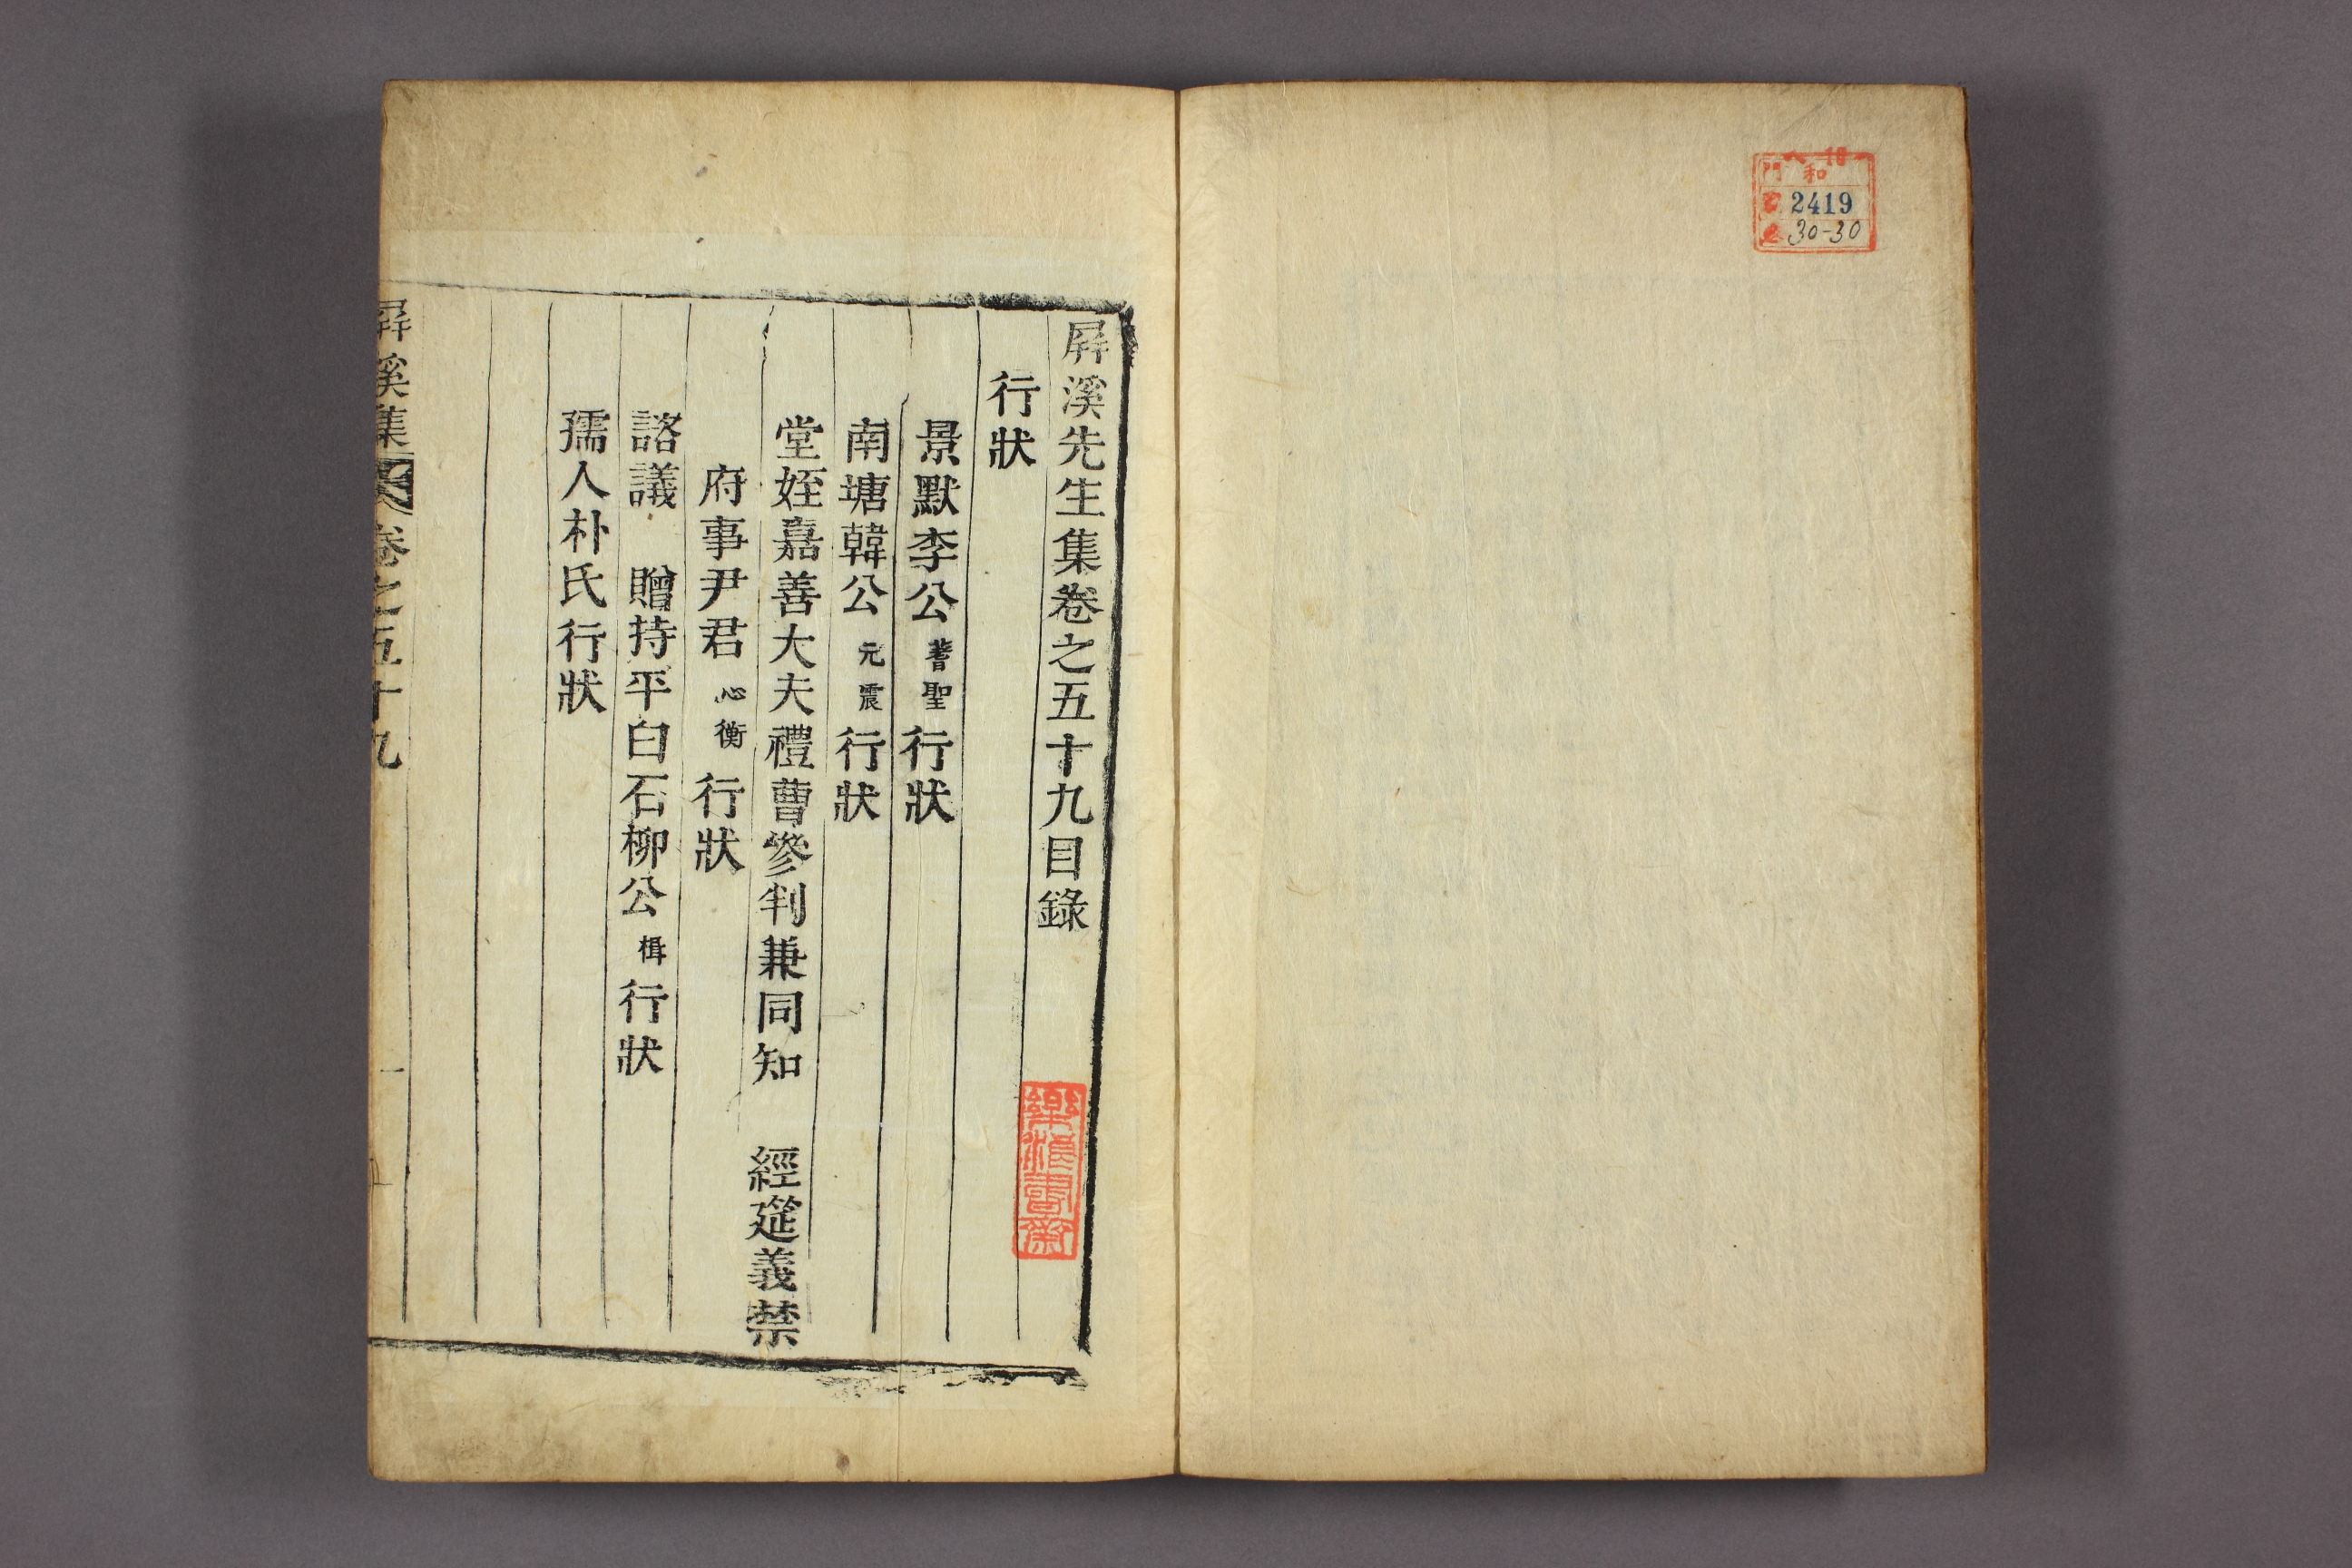 和
門
2419
30-30
屛溪先生集卷之五十九目錄
行狀
景默李公蓍聖行狀
南塘韓公元震行狀
堂姪嘉善大夫禮曹參判兼同知 經筵義禁
府事尹君心衡行狀
諮議 贈持平白石柳公楫行狀
孺人朴氏行狀
屛溪集 卷之五十九 一